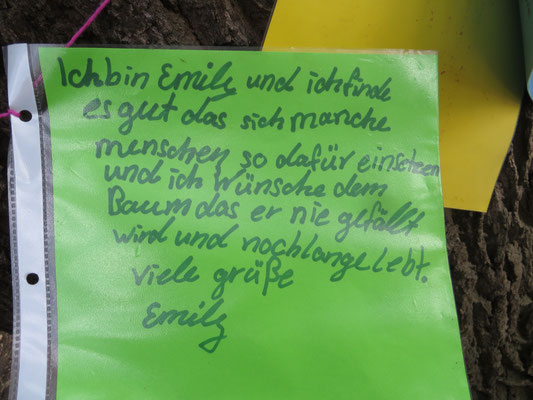 Ich bin Emily und ich finde
es gut das sich manche
menschen so dafür einsetzen
und ich wünsche dem
Baum das er nie gefällt
wird und noch lange lebt.
viele grüße
Emily